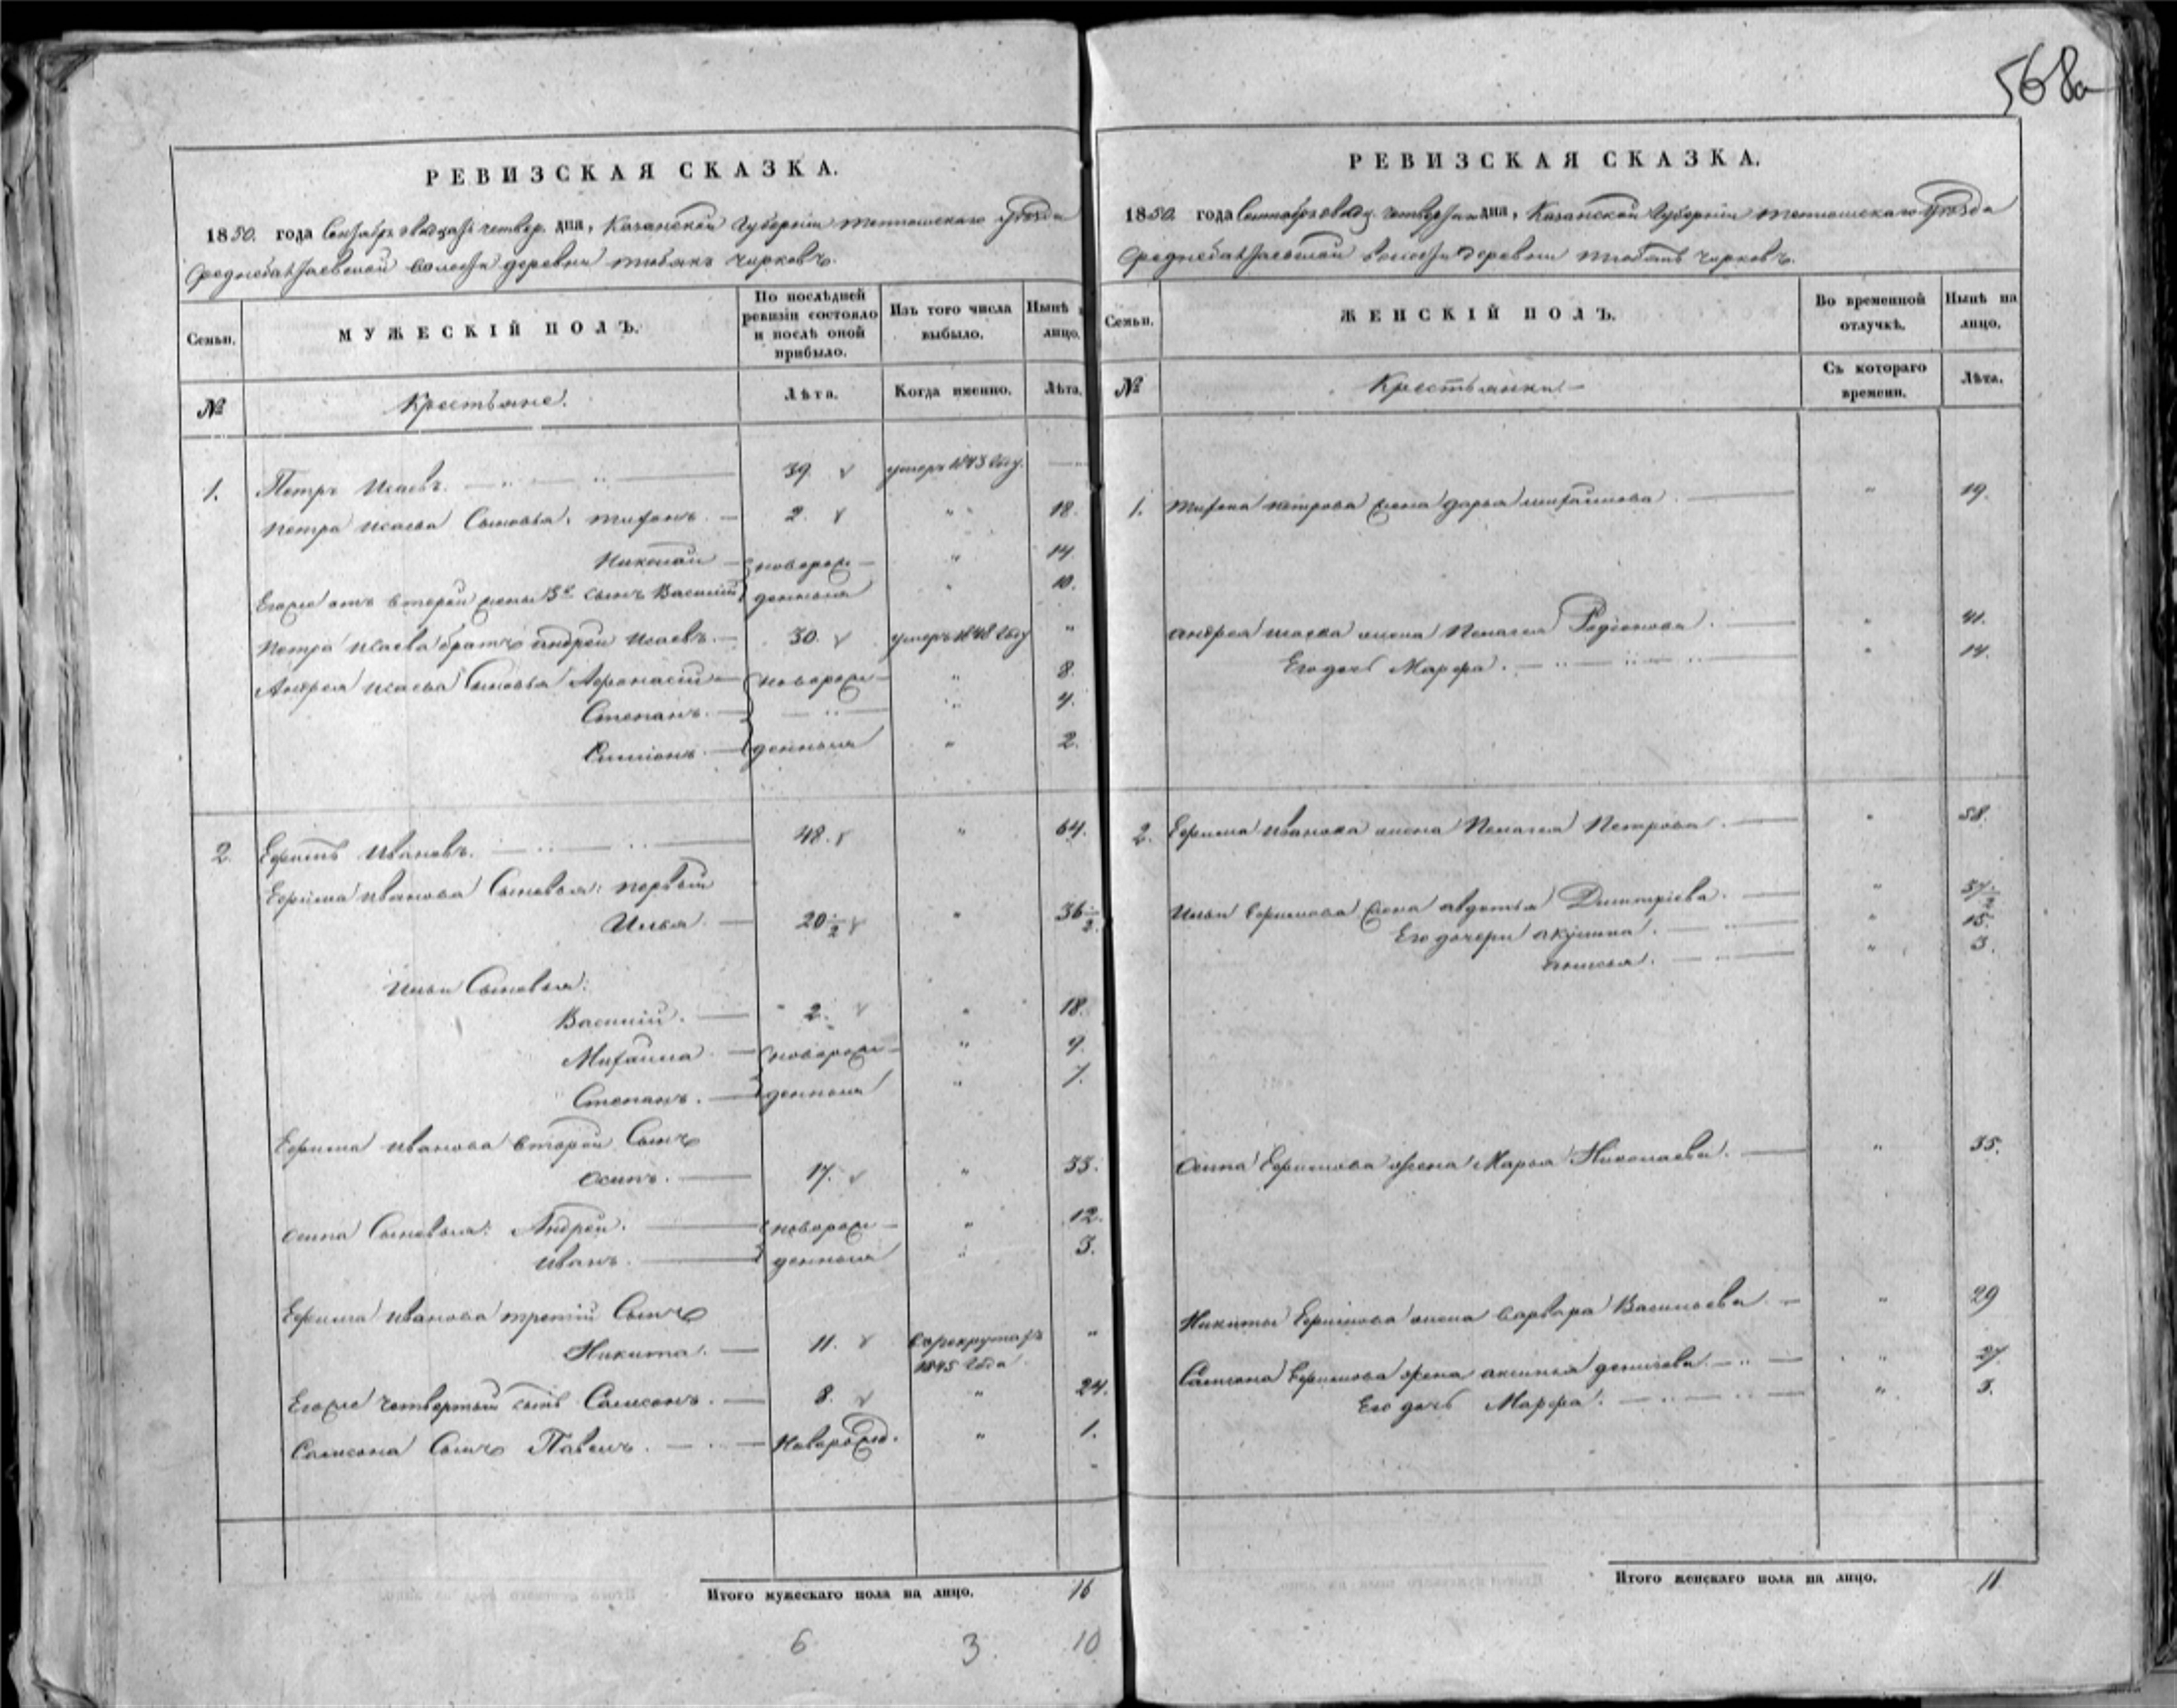 568а
РЕВИЗСКАЯ СКАЗКА.
1850. года Сентября двадцать четвер. дня, Казанской Губернии Тетюшскаго уѣзда
деревни Тюбякъ Чирковъ.
Семьи.
МУЖЕСКІЙ ПОЛЪ.
По послѣдней ревизіи состояло и послѣ оной прибыло.
Изъ того числа выбыло.
Нынѣ лицо.
№
Крестьяне.
Лѣта.
Когда именно.
Лѣта.
1. Петръ Исаевъ. 39. умеръ 1843 году.
Петра Исаева Сыновья: Тифонъ. 2. " 18.
Николай новорож- " 14
Егоже отъ второй жены 3й сынъ Василій денныя " 10.
Петра Исаева братъ Андрей Исаевъ. 30. умеръ 1848 году "
Андрея Исаева Сыновья Афонасій новорож- " 8.
Степанъ. " 4.
Симіонъ. денныя " 2.
2. Ефимъ Ивановъ. 48. " 64.
Ефима Иванова Сыновья: первый
Илья. 20 1/2 " 36 1/2.
Ильи Сыновья:
Василій. 2. " 18.
Михаила новорож- " 9.
Степанъ. денныя " 7.
Ефима Иванова второй Сынъ
Осипъ. 17. " 33.
Осипа Сыновья: Андрей. новорож- " 12.
Иванъ. денныя " 3.
Ефима Иванова третій Сынъ
Никита. 11. въ рекрутахъ "
1845 года
Егоже четвертый сынъ Самсонъ. 8. " 24.
Самсона Сынъ Павелъ. Новорожд. " 1.
Итого мужескаго пола на лицо. 16
6 3. 10
РЕВИЗСКАЯ СКАЗКА.
1850. года Сентября двадц. четвертаго дня, Казанской Губернии Тетюшскаго Уѣзда
деревни Тюбякъ Чирковъ.
Семьи.
ЖЕНСКІЙ ПОЛЪ.
Во временной отлучкѣ.
Нынѣ на лицо.
№
Крестьянки.
Съ котораго времени.
Лѣта.
1. Тифона Петрова жена Дарья Михайлова. " 19.
Андрея Исаева жена Пелагея Родіонова. " 41.
Его дочь Марфа. " 14.
2. Ефима Иванова жена Пелагея Петрова. " 58.
Ильи Ефимова жена Авдотья Димитріева. " 37 1/2
Его дочери Акулина. " 15.
Анисья. " 3.
Осипа Ефимова жена Марья Николаева. " 35.
Никиты Ефимова жена Варвара Васильева. " 29
Самсона Ефимова жена Аксинья Денисова. " 27.
Его дочь Марфа. " 3.
Итого женскаго пола на лицо. 11